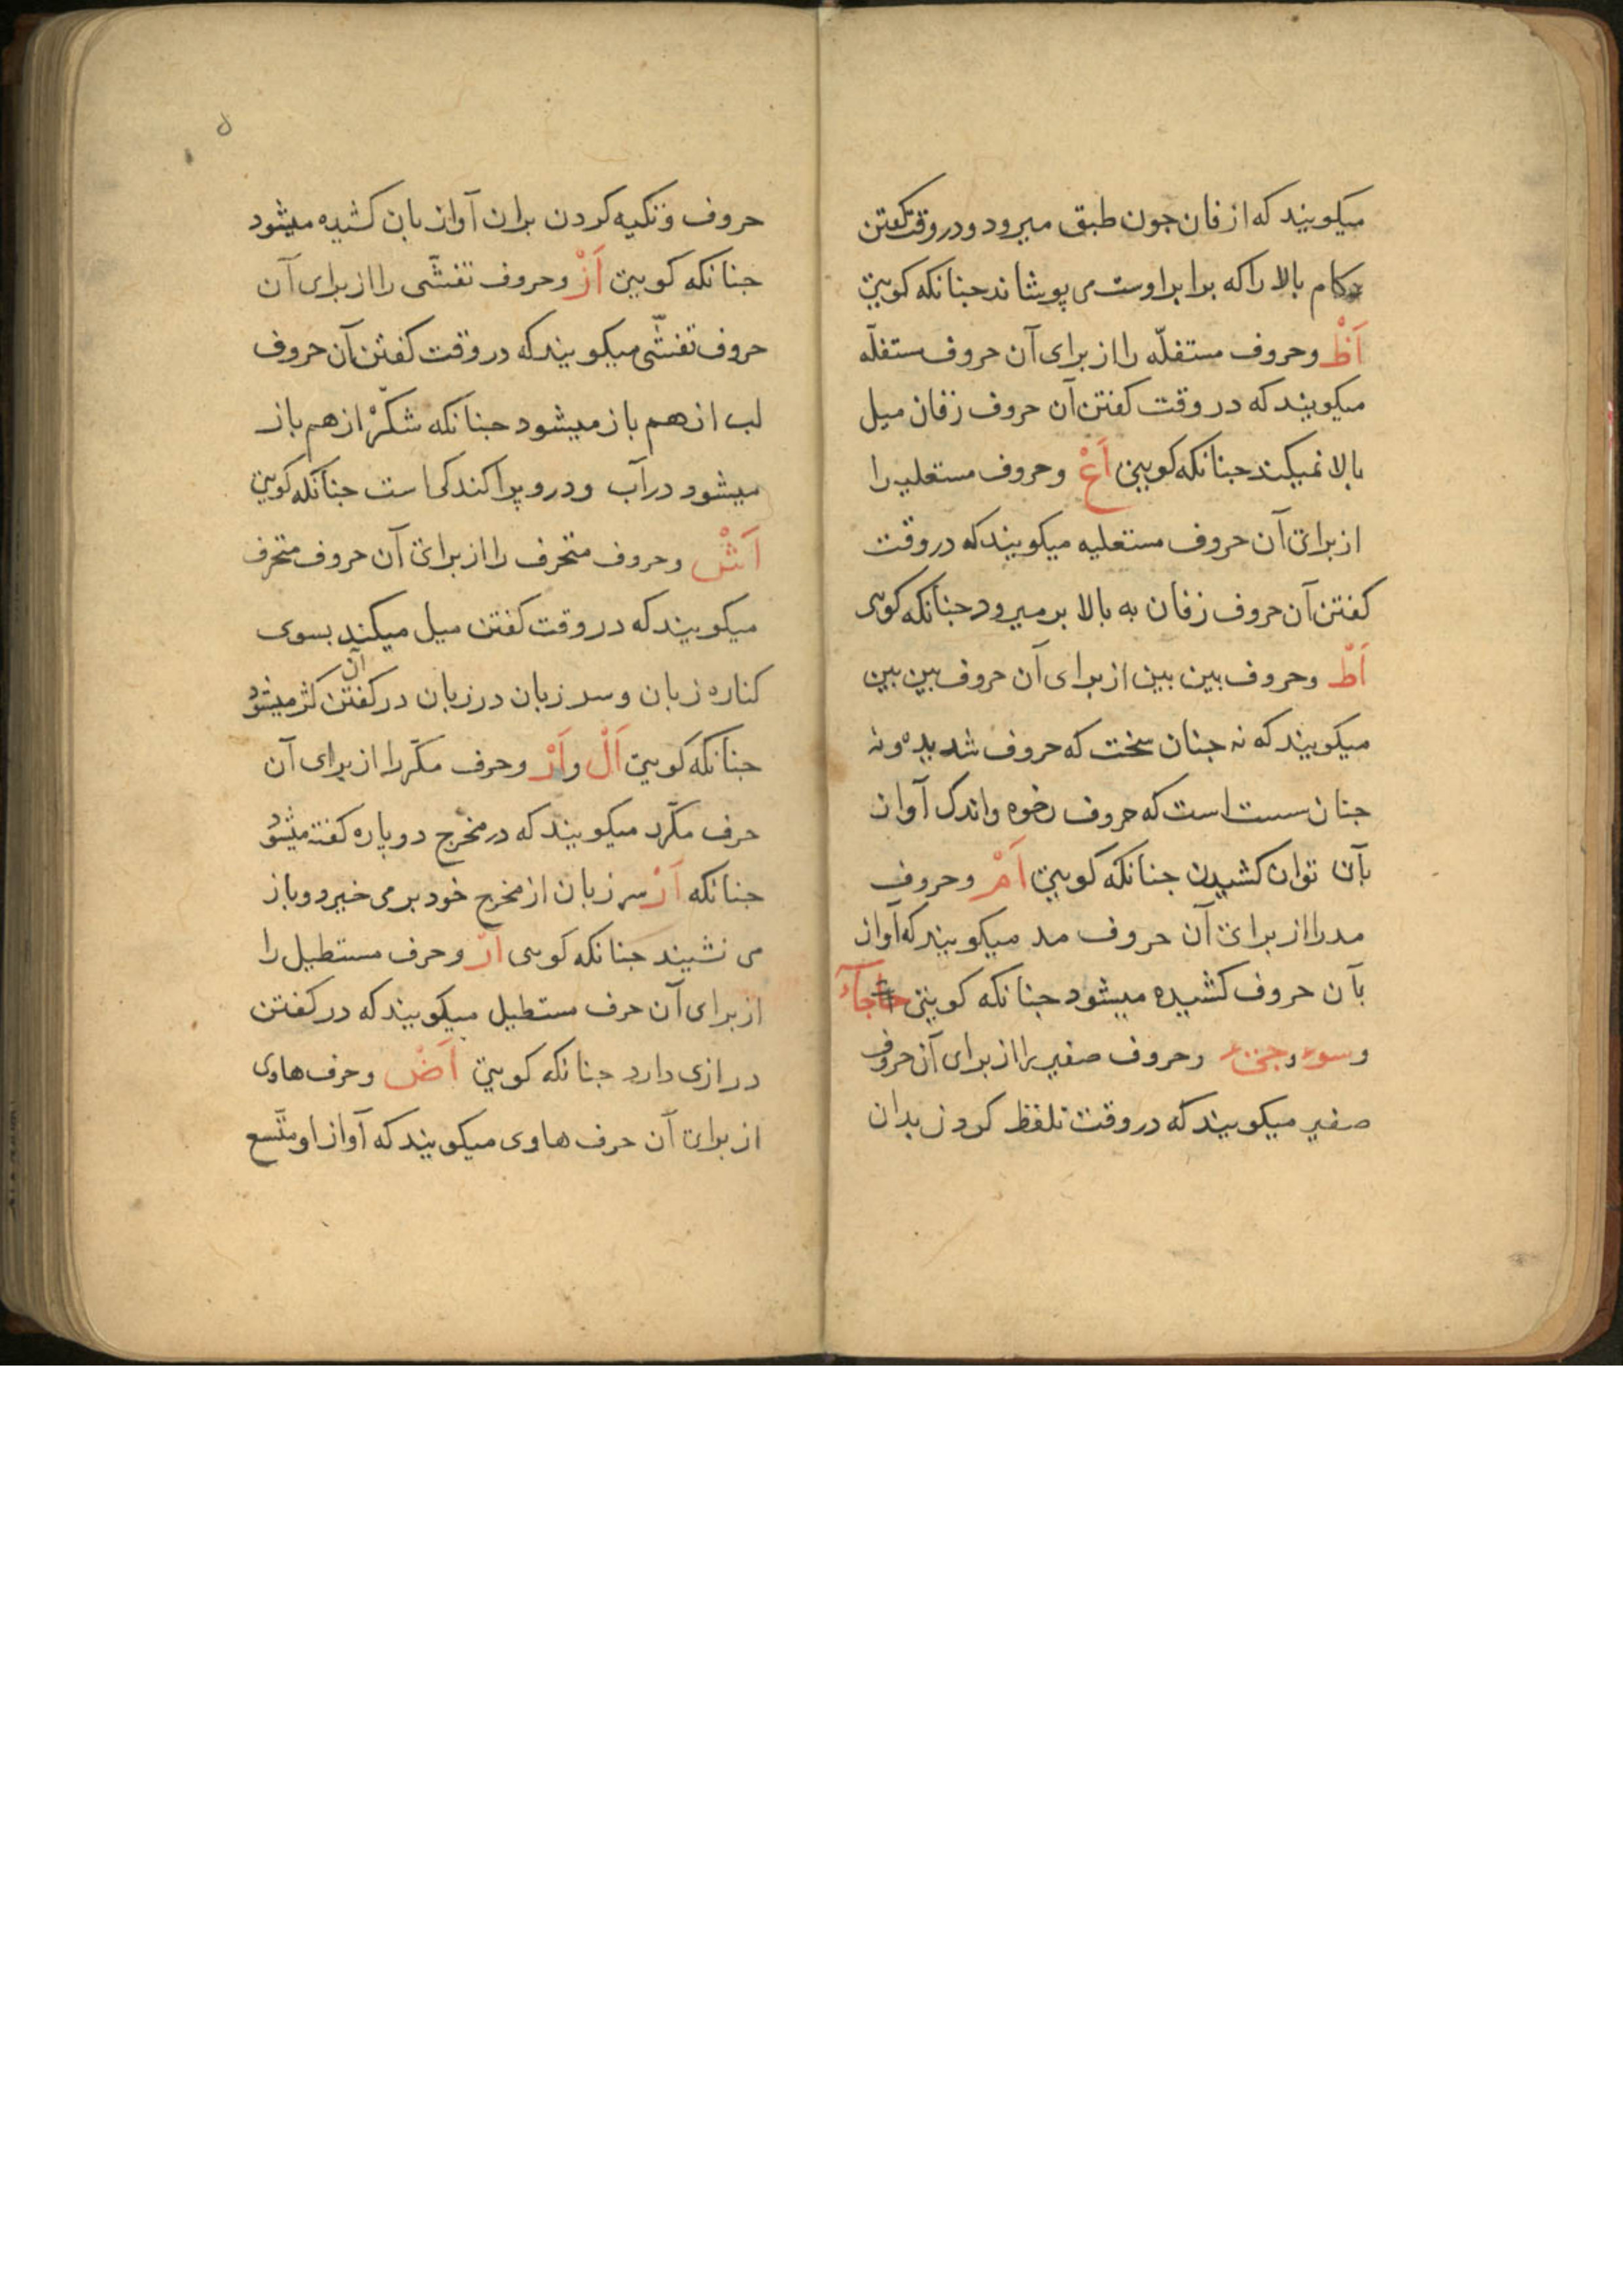 میکویند که از فان جون طبق میرود و در وقت کفتن
کام بالا را که برابر اوست می پوشاند جنانکه کویی
اَظْ و حروف مستفلّه را از برای آن حروف مستفلّه
میکویند که در وقت کفتن آن حروف زفان میل
بالا نمیکند جنانکه کویی اَعْ و حروف مستعلیه را
از برای آن حروف مستعلیه میکویند که در وقت
کفتن آن حروف زفان به بالا بر میرود جنانکه کویی
اَطْ و حروف بین بین از برای آن حروف بین بین
میکویند که نه جنان سخت که حروف شدیده و نه
جنان سست است که حروف رخوه و اندک آواز
بآن توان کشیدن جنانکه کویی اَمْ و حروف
مد را از برای آن حروف مد میکویند که آواز
بآن حروف کشیده میشود جنانکه کویی جآء
و سوء و جیء و حروف صفیر را از برای آن حروف
صفیر میکویند که در وقت تلفظ کردن بدان
۵
حروف و تکیه کردن بران آواز بان کشیده میشود
جنانکه کویی اَزْ و حروف تفشّی را از برای آن
حروف تفشّی میکویند که در وقت کفتن آن حروف
لب از هم باز میشود جنانکه شکر از هم باز
میشود در آب و درو پراکندکی است جنانکه کویی
اَشْ و حروف متحرف را از برای آن حروف متحرف
میکویند که در وقت کفتن میل میکند بسوی
کناره زبان و سر زبان در زبان در کفتن آن کژ میشود
جنانکه کویی اَلْ و اَرْ و حرف مکرّر را از برای آن
حرف مکرّر میکویند که در مخرج دوباره کفته میشود
جنانکه اَرْ سر زبان از مخرج خود بر می خیزد و باز
می نشیند جنانکه کویی ارّ و حرف مستطیل را
از برای آن حرف مستطیل میکویند که در کفتن
درازی دارد جنانکه کویی اَضْ و حرف هاوی
از برای آن حرف هاوی میکویند که آواز او متّسع